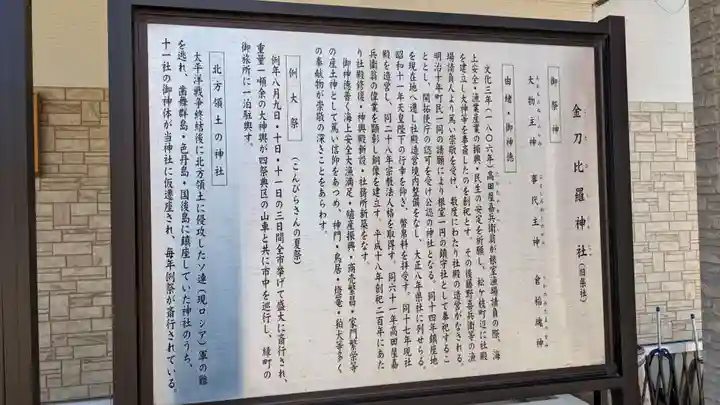 金刀比羅神社(旧県社)
御祭神
大物主神 事代主神 倉稲魂神
おおものぬしのかみ ことしろぬしのかみ うかのみたまのかみ
由緒・御神徳
文化三年(一八〇六年)高田屋嘉兵衛翁が根室漁場請負の際、海
上安全・漁業産業の振興・民生の安定を祈願し、松ヶ枝町辺に社殿
を建立し大神等を奉斎したのを創祀とす。その後藤野喜兵衛等の漁
場請負人より篤い崇敬を受け、数度にわたり社殿の造営がなされる。
明治十年町民一同の請願により根室一円の鎮守社として奉祀するこ
ととし、開拓使庁の認可を受け公認の神社となる。同十四年鎮座地
を現在地へ遷し社殿造営境内整備をなし、大正八年県社に列せらる。
昭和十一年天皇陛下の行幸を仰ぎ、幣帛料を拝受す。同十七年現社
殿を造営し、同二十八年宗教法人格を取得す。同六十一年高田屋嘉
兵衛翁の偉業を顕彰し銅像を建立す。平成十八年創祀二百年にあた
り社殿修復・神輿殿新設・社務所新築をなす。
御神徳善く海上安全大漁満足・殖産振興・商売繁昌・家門繁栄等
の産土神として篤い信仰をあつめ、神門・鳥居・燈篭・狛犬等多く
の奉献物が崇敬の深さことをあらわす。
例大祭(こんぴらさんの夏祭)
例年八月九日・十日・十一日の三日間全市挙げて盛大に斎行され、
重量一頓余の大神輿が四祭典区の山車と共に市中を巡行し、緑町の
御旅所に一泊駐輿す。
北方領土の神社
太平洋戦争終結後に北方領土に侵攻したソ連(現ロシア)軍の難
を逃れ、歯舞群島・色丹島・国後島に鎮座していた神社のうち、
十一社の御神体が当神社に仮遷座され、毎年例祭が斎行されている。